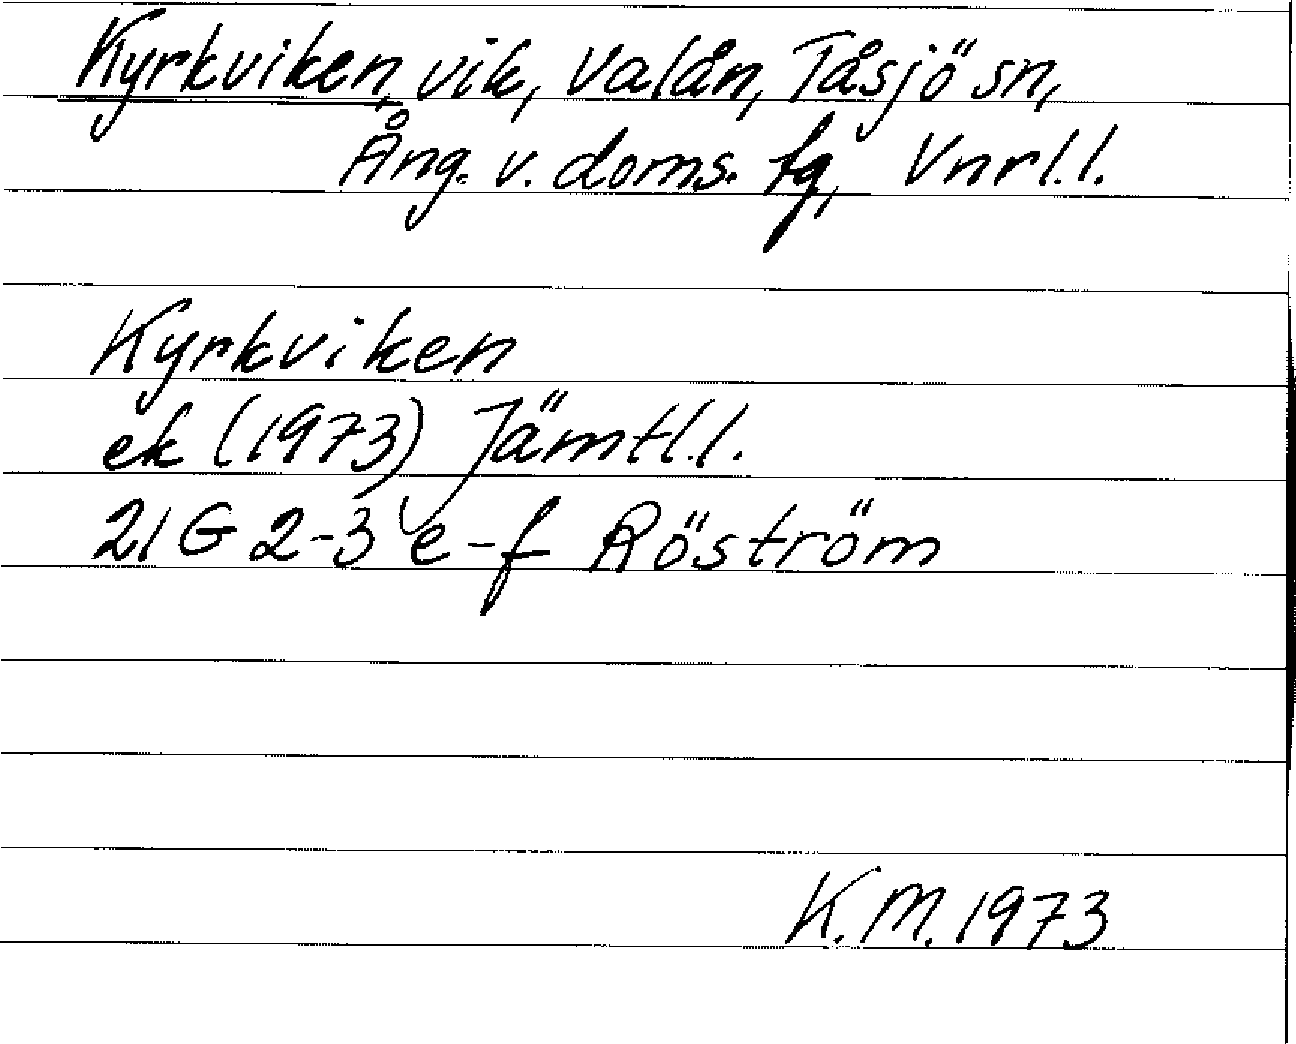 Kyrkviken, vik, Valån, Tåsjö sn,
Ång. v. doms. fg, Vnrl.l.
Kyrkviken
ek (1973) Jämtl.l.
21 G 2-3 e-f Röström
K.M. 1973